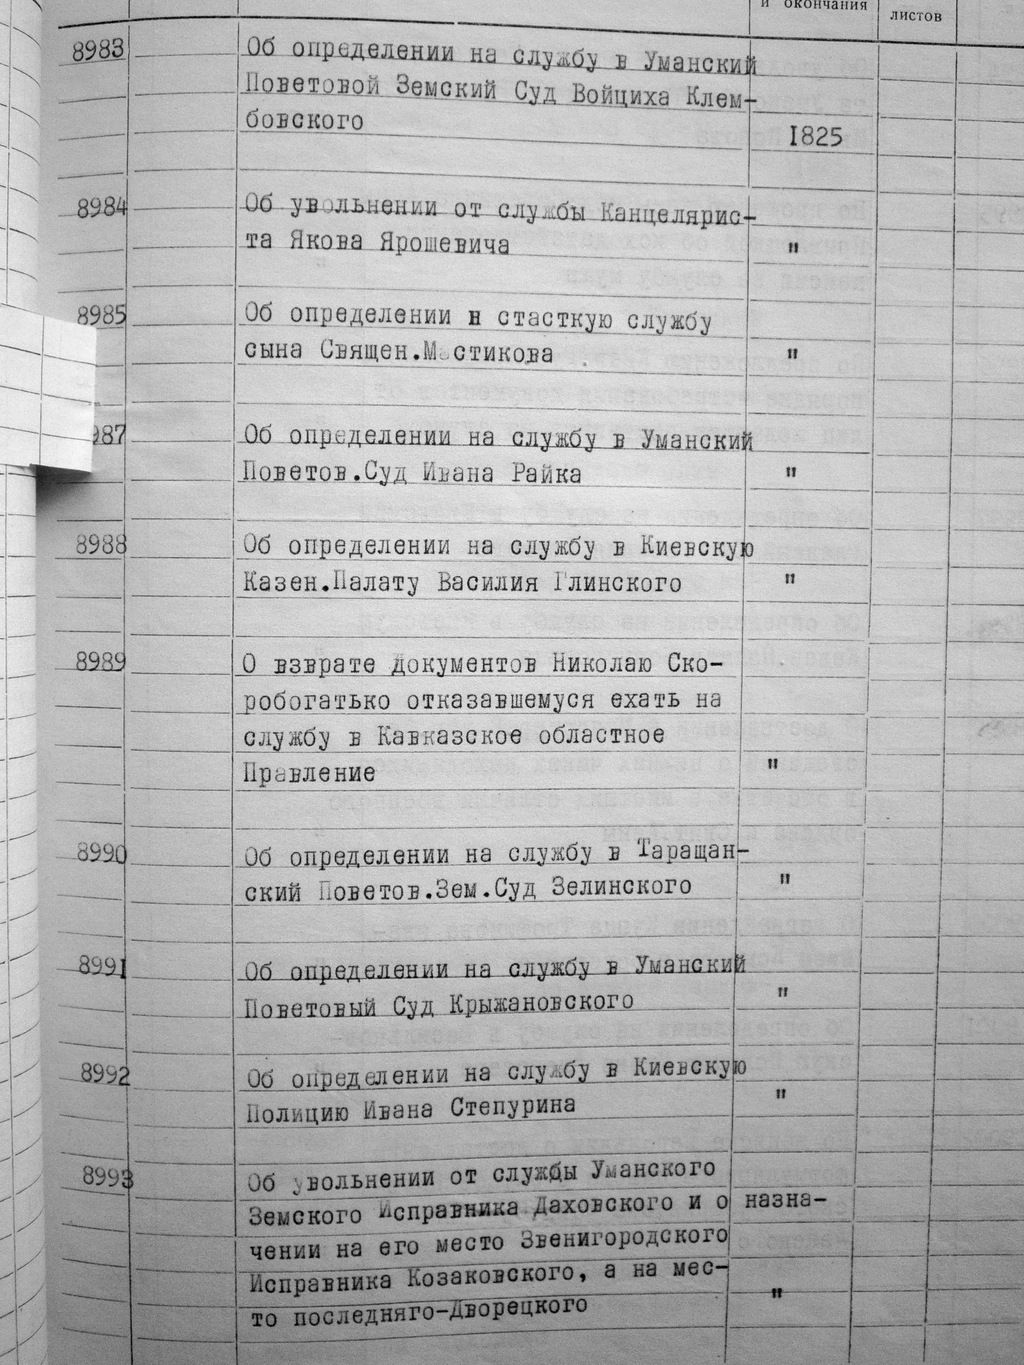 и окончания
листов
8983 Об определении на службу в Уманский
Поветовой Земский Суд Войциха Клем-
бовского
1825
8984 Об увольнении от службы Канцелярис-
та Якова Ярошевича "
8985 Об определении в стасткую службу
сына Священ.Мастикова "
987 Об определении на службу в Уманский
Поветов.Суд Ивана Райка "
8988 Об определении на службу в Киевскую
Казен.Палату Василия Глинского "
8989 О взврате документов Николаю Ско-
робогатько отказавшемуся ехать на
службу в Кавказское областное
Правление "
8990 Об определении на службу в Таращан-
ский Поветов.Зем.Суд Зелинского "
8991 Об определении на службу в Уманский
Поветовый Суд Крыжановского "
8992 Об определении на службу в Киевскую
Полицию Ивана Степурина "
8993 Об увольнении от службы Уманского
Земского Исправника Даховского и о назна-
чении на его место Звенигородского
Исправника Козаковского, а на мес-
то последняго-Дворецкого "